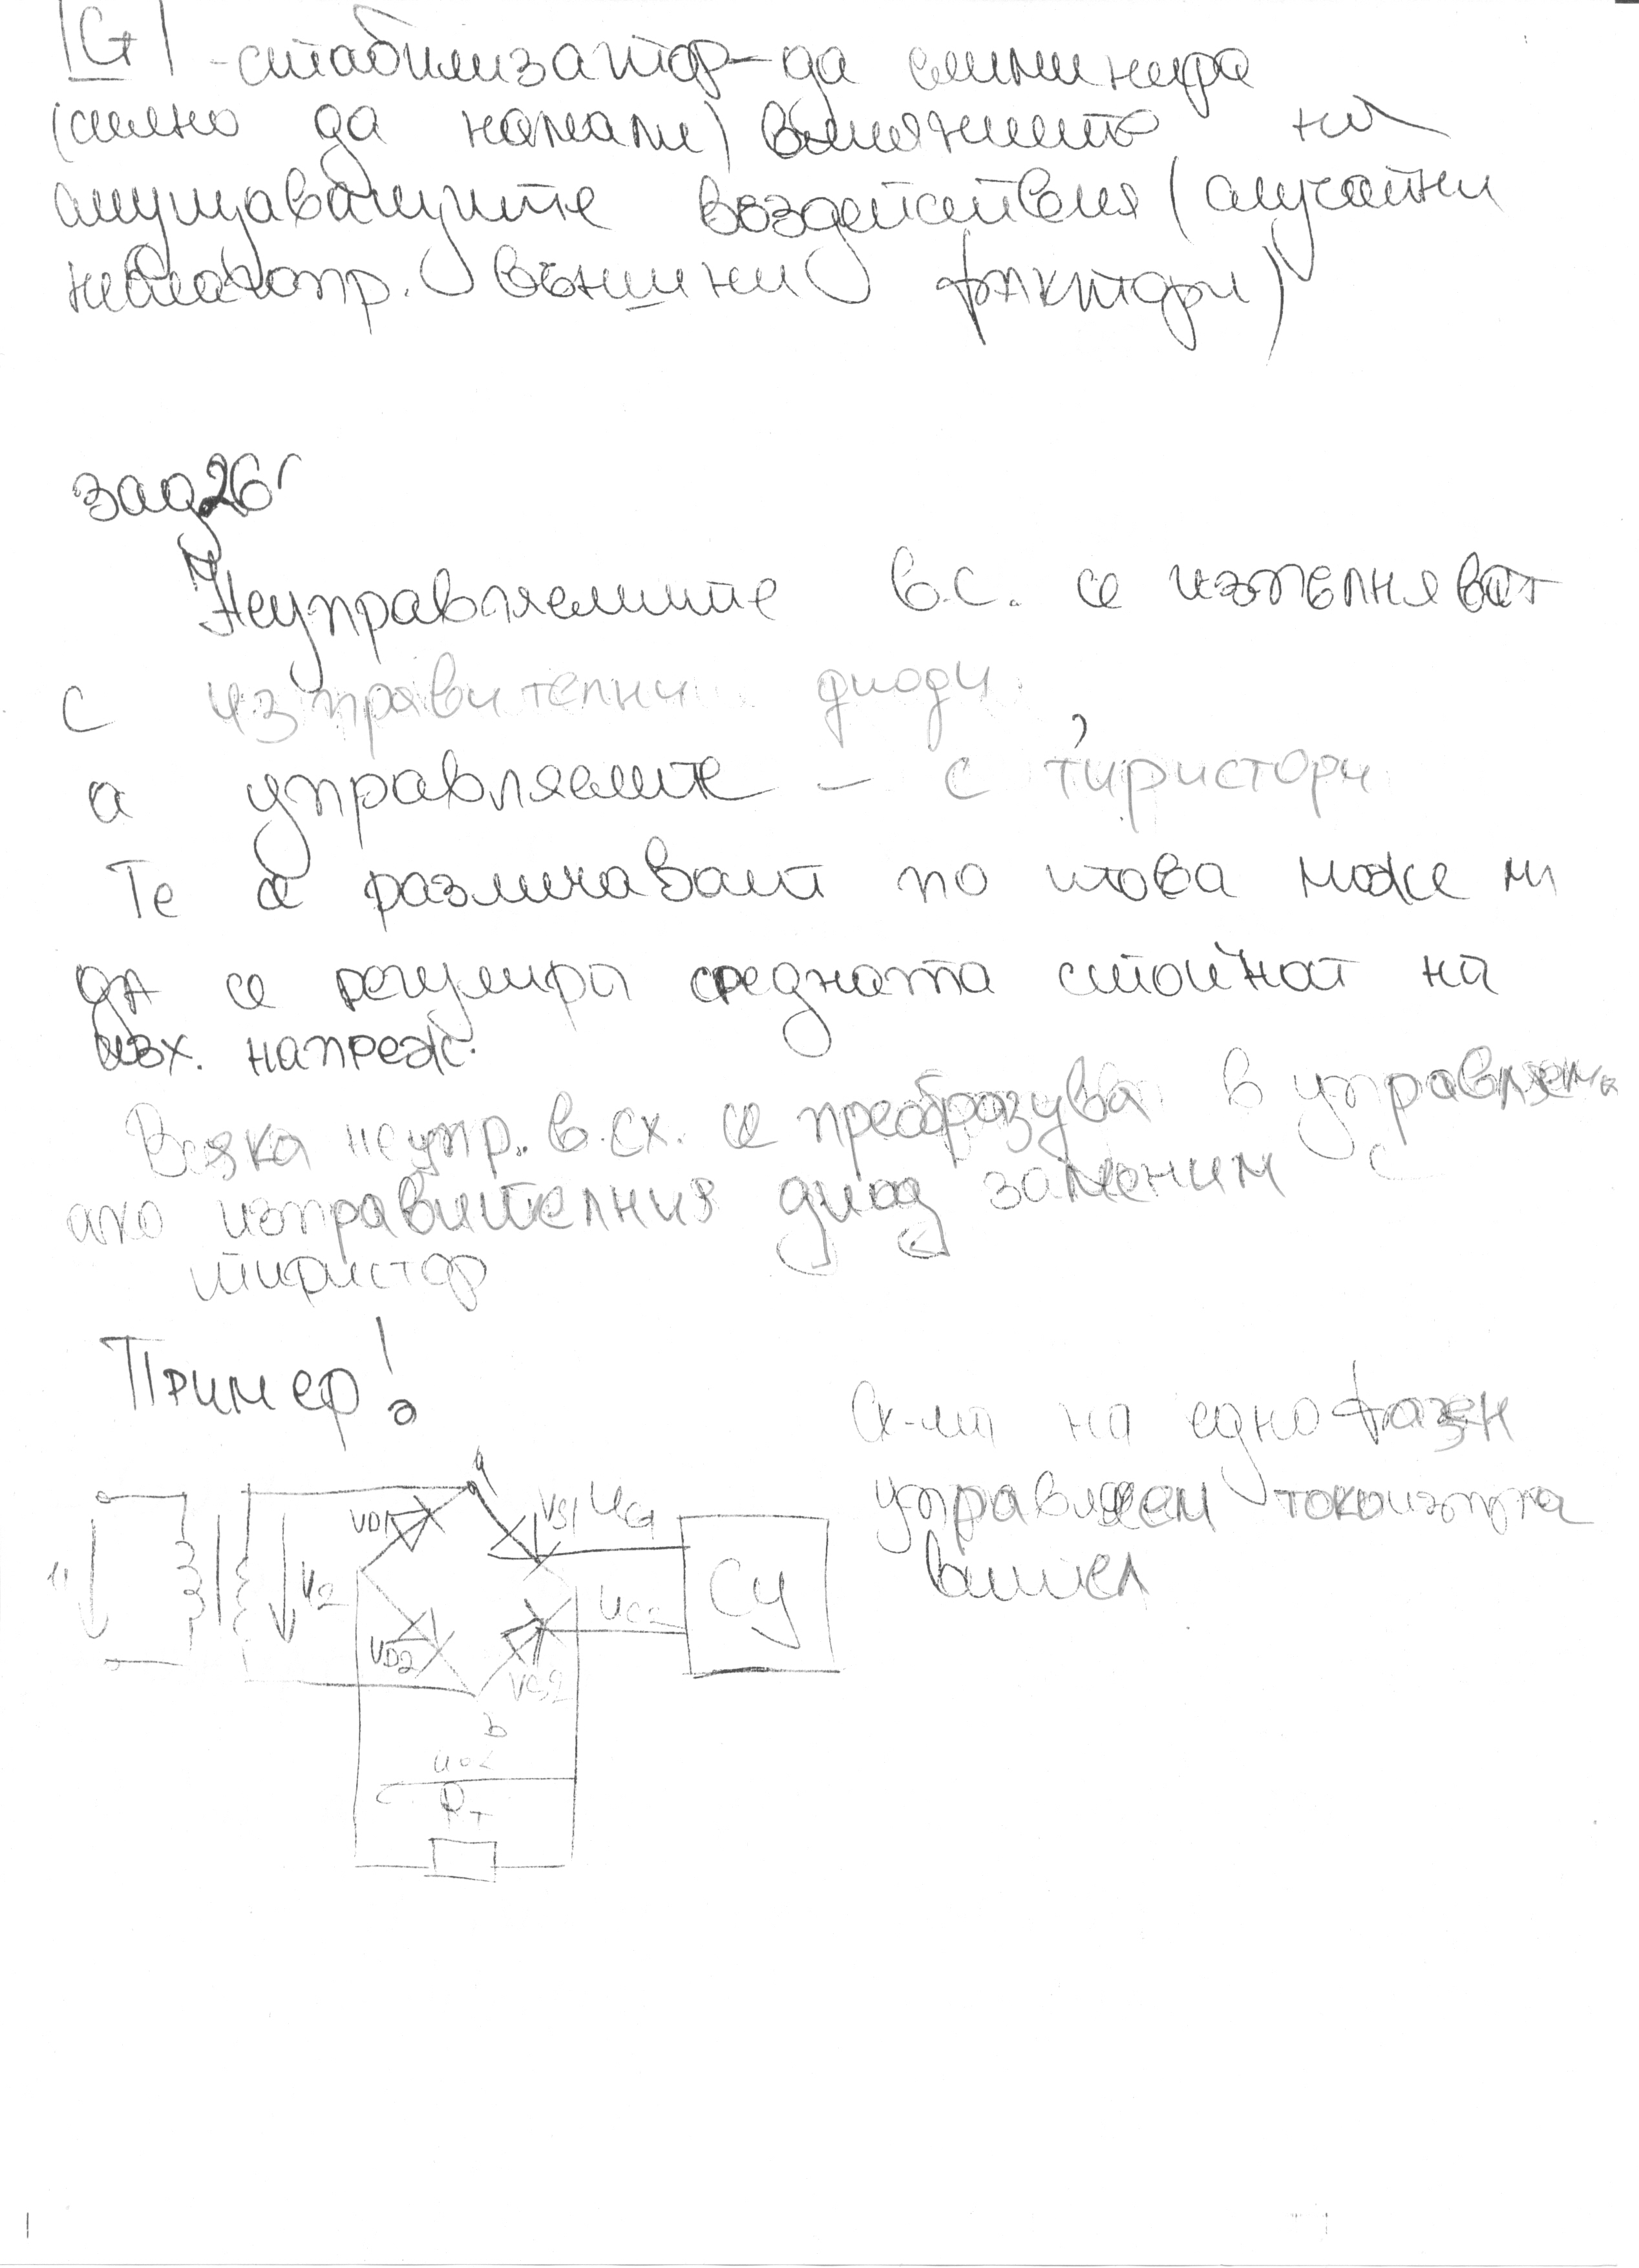 Ст - стабилизатор - да елиминира
(силно да намали) влиянието на
смущаващите воздействия (случайни
неблагопр. външни фактори)
зад.26
Неуправляемите в.с. се изпълняват
с изправителни диоди,
а управляемите - с тиристори
Те се различават по това може ли
да се регулира средната стойност на
изх. напреж.
Всяка неупр. в. сх. се преобразува в управляема
ако изправителния диод заменим с
тиристор
Пример!
Сх-ма на еднофазен
управляем токоизпра
вител
a
VD1 VS1 UG1
U2 СУ
VD2 VS2
b
RT